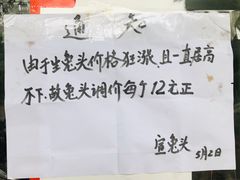 通知
由于生兔头价格狂涨且一直居高
不下.故兔头调价每个12元正
宜兔头
5月2日